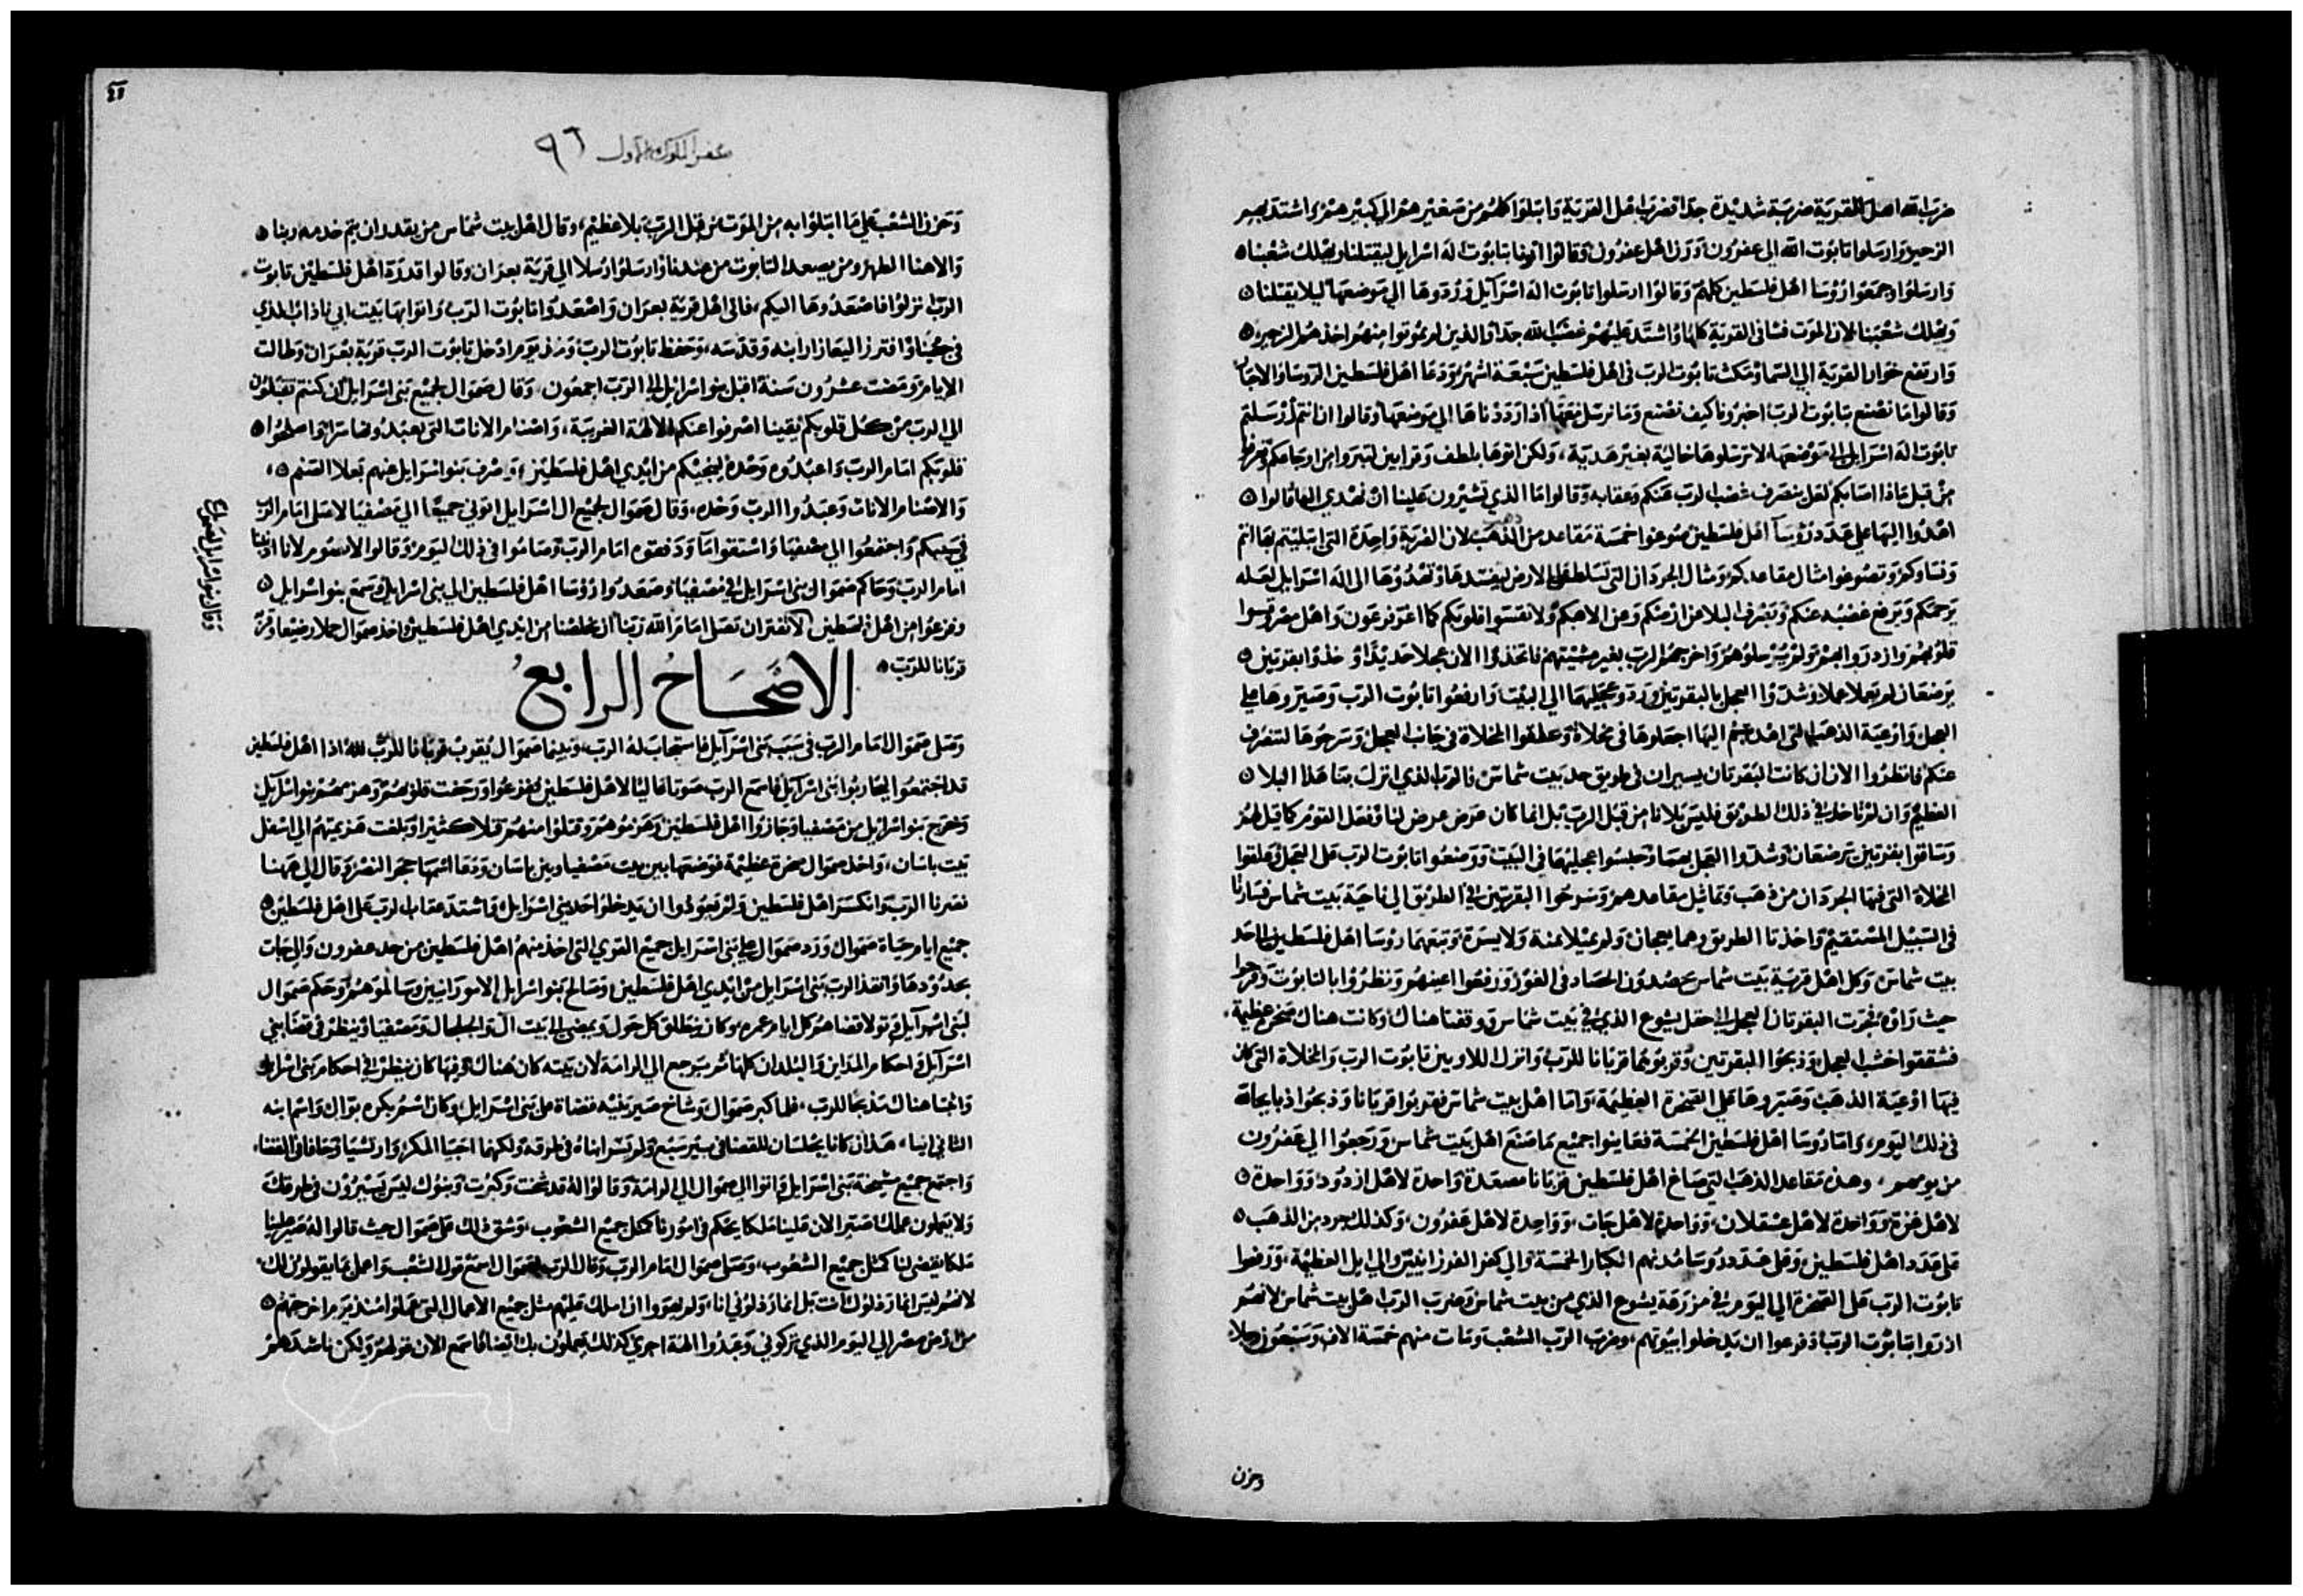 ضرب الله اهل القرية ضربة شديدة جدا فضرب اهل القرية وابتلوا كلهم من صغيرهم الي كبيرهم واشتد بهم
الزحير وارسلوا تابوت الله الي عفرون وزن اهل عفرون وقالوا اتونا بتابوت اله اسرايل ليقتلنا ويهلك شعبنا
وارسلوا وجمعوا روسا اهل فلسطين كلهم وقالوا ارسلوا تابوت اله اسرآيل وردوها الي موضعها ليلا يقتلنا
ويهلك شعبنا لان الموت فشا في القرية كلها واشتد عليهم غضب الله جدا والذين لم يموتوا منهم اخذهم الزحير
وارتفع خوار القرية الي السما ومكث تابوت الرب في اهل فلسطين سبعة اشهر ودعا اهل فلسطين الروسا والاحبار
وقالوا ما نصنع بتابوت الرب اخبرونا كيف نصنع وما نرسل معها اذا رددناها الي موضعها وقالوا ان انتم ارسلتم
تابوت اله اسرايل الي موضعها لا ترسلوها خالية بغير هدية ولكن اتوها بلطف وقرابين لتبروا من اوجاعكم
من قبل ماذا اصابكم لعل ينصرف غضب الرب عنكم وعقابه وقالوا ما الذي تشيرون علينا ان نهدي اليها قالوا
اهدوا اليها علي عدد روسآ اهل فلسطين صوغوا خمسة مقاعد من الذهب لان الضربة واحدة التي ابتليتم بها انتم
وروساوكم وتصوغوا مثال مقاعدكم ومثال الجردان التي تسلطت علي الارض لتفسدها وتهدوها الي اله اسرايل لعله
يرحمكم ويرفع غضبه عنكم ويصرف البلا عن ارضكم وعن الاهكم ولا تقسوا قلوبكم كما اغر فرعون واهل مصر قسوا
قلوبهم وازدروا بهم ولم يرسلوهم واخرجهم الرب بغير مشيتهم فاتخذوا الان عجلا حديدا وخذوا بقرتين
ترضعان لم تعملا عملا وشدوا العجل بالبقرتين وردوا عجليهما الي البيت وارفعوا تابوت الرب وصيروها علي
العجل واوعية الذهب التي اهديتم اليها اجعلوها في مخلاة وعلقوا المخلاة في جانب العجل وسرحوها لتنصرف
عنكم فانظروا الان ان كانت البقرتان يسيران في طريق حد بيت شماس فالرب الذي انزل بنا هذا البلا
العظيم وان لم تاخد في ذلك الطريق فليس بلانا من قبل الرب بل انما كان عرض عرض لنا وفعل القوم كما قيل لهم
وساقوا بقرتين ترضعان وشدوا العجل بهما وحبسوا عجليهما في البيت ووضعوا تابوت الرب علي العجل وعلقوا
المخلاة التي فيها الجردان من ذهب وتماثيل مقاعدهم وسرحوا البقرتين في الطريق الي ناحية بيت شماس فسارتا
في السبيل المستقيم واخذتا الطريق وهما يعجان ولم يميلا يمنة ولا يسرة وتبعهما روسا اهل فلسطين الي حد
بيت شماس وكل اهل قرية بيت شماس يحصدون الحصاد في الغور ورفعوا اعينهم ونظروا بالتابوت وفرحوا
حيث راوه فجرت البقرتان العجل الي حقل يشوع الذي في بيت شماس ووقفتا هناك وكانت هناك صخرة عظيمة
فشققوا خشب العجل وذبحوا البقرتين وقربوهما قربانا للرب وانزل اللاويين تابوت الرب والمخلاة التي كان
فيها اوعية الذهب وصيروها علي الصخرة العظيمة واما اهل بيت شماس فقربوا قربانا وذبحوا ذبايحا
في ذلك اليوم واما روسا اهل فلسطين الخمسة فعاينوا جميع ما صنع اهل بيت شماس ورجعوا الي عفرون
من يومهم وهذه مقاعد الذهب التي صاغ اهل فلسطين قربانا مصعدة واحدة لاهل ازدود وواحدة
لاهل غزة وواحدة لاهل عسقلان وواحدة لاهل جات وواحدة لاهل عفرون وكذلك جرد من الذهب
علي عدد اهل فلسطين وعلي عدد روسا مدنهم الكبار الخمسة والي كفر الفرزانيين والي ابل العظيمة ووضعوا
تابوت الرب علي الصخرة الي اليوم في مزرعة يشوع الذي من بيت شماس وضرب الرب اهل بيت شماس لانهم
ازدروا بتابوت الرب وفزعوا ان يدخلوا بيوتهم وضرب الرب الشعب ومات منهم خمسة الاف وسبعون رجلا
وحزن
سفر الملوك الاول ٩٦
وحزن الشعب علي ما ابتلوا به من الموت من قبل الرب بلا عظيم وقال اهل بيت شماس من يقدر ان يتم خدمه ربنا
والاهنا الطهر ومن يصعد التابوت من عندنا وارسلوا رسلا الي قرية يعران وقالوا قد رد اهل فلسطين تابوت
الرب انزلوا فاصعدوها اليكم فاتي اهل قرية يعران واصعدوا تابوت الرب واتوا بها بيت ابي ناداب الذي
في جبعا وافترز اليعازار ابنه وقدسه وحفظ تابوت الرب ومن يوم ادخل تابوت الرب قرية يعران وطالت
الايام ومضت عشرون سنة اقبل بنو اسرايل الي الرب اجمعون وقال صموال لجميع بني اسرايل ان كنتم تقبلون
الي الرب من كل قلوبكم يقينا اصرفوا عنكم الالهة الغريبة واصنام الاناث التي تعبدونها سرا اصلحوا
قلوبكم امام الرب واعبدوه وحده لينجيكم من ايدي اهل فلسطين وصرف بنو اسرايل عنهم بعلا الصنم
والاصنام الاناث وعبدوا الرب وحده وقال صموال لجميع ال اسرايل اتوني جميعا الي مصفيا لاصلي امام الرب
في سببكم واجتمعوا الي مصفيا واستقوا مآ ودفقوه امام الرب وصاموا في ذلك اليوم وقالوا لانا اذنبنا
امام الرب وحاكم صموال بني اسرايل في مصفيا وصعدوا روسا اهل فلسطين الي بني اسرايل وسمع بنو اسرايل
وفزعوا من اهل فلسطين لا تفتر ان تصلي امام الله ربنا ان يخلصنا من ايدي اهل فلسطين واخذ صموال حملا رضيعا وقربه
قربانا للرب
الاصحاح الرابع
وصلي صموال امام الرب في سبب بني اسرآيل فاستجاب له الرب وبينما صموال يقرب قربانا للرب اذا اهل فلسطين
قد اجتمعوا ليحاربوا بني اسرآيل فاسمع الرب صوتا عاليا لاهل فلسطين ففزعوا ورجفت قلوبهم وهزمهم بنو اسرآيل
وخرج بنو اسرايل من مصفيا وجازوا اهل فلسطين وهزموهم وقتلوا منهم قتلا كثيرا وبلغت هزيمتهم الي اسفل
بيت ياسان واخذ صموال صخرة عظيمة فوضعها بين بيت مصفيا وبين ياسان ودعا اسمها حجر النصر وقال الي ههنا
نصرنا الرب وانكسر اهل فلسطين ولم يعودوا ان يدخلوا حد بني اسرايل واشتد عقاب الرب علي اهل فلسطين
جميع ايام حياة صموال ورد صموال علي بني اسرايل جميع القري التي اخذ منهم اهل فلسطين من حد عفرون والي جات
بحدودها وانقذ الرب بني اسرايل من ايدي اهل فلسطين وصالح بنو اسرايل الامورانيين وسالموهم وحكم صموال
لبني اسرآيل وتولا قضاهم كل ايام عمره وكان ينطلق كل حول ويمضي الي بيت ال والجلجال ومصفيا وينظر في قضا بني
اسرآيل واحكام المداين والبلدان كلها ثم يرجع الي الرامة لان بيته كان هناك وفيها كان ينظر في احكام بني اسرايل
وابتنا هناك مذبحا للرب فلما كبر صموال وشاخ صير بنيه قضاة علي بني اسرايل وكان اسم بكره يوال واسم ابنه
الثاني ابيا هذان كانا يجلسان للقضا في بير سبع ولم يسر ابناه في طرقه ولكنهما احبا المكر وارتشيا وحافا في القضا
واجتمع جميع مشيخة بني اسرايل واتوا الي صموال الي الرامة وقالوا له قد شخت وكبرت وبنوك ليس يسيرون في طرقك
ولا يعملون عملك صير الان علينا ملكا يحكم في امورنا كمثل جميع الشعوب وشق ذلك علي صموال حيث قالوا له صير علينا
ملكا يقضي لنا كمثل جميع الشعوب وصلي صموال امام الرب وقال الرب لصموال اسمع قول الشعب واعمل بما يقولون لك
لانهم ليس اياك رذلوك انت بل انما رذلوني انا ولم يهووا ان املك عليهم مثل جميع الاعمال التي عملوا منذ يوم اخرجتهم
من ارض مصر الي اليوم الذي تركوني وعبدوا الهة اخري كذلك يعملون بك ايضا فاسمع الان قولهم ولكن ناشدهم